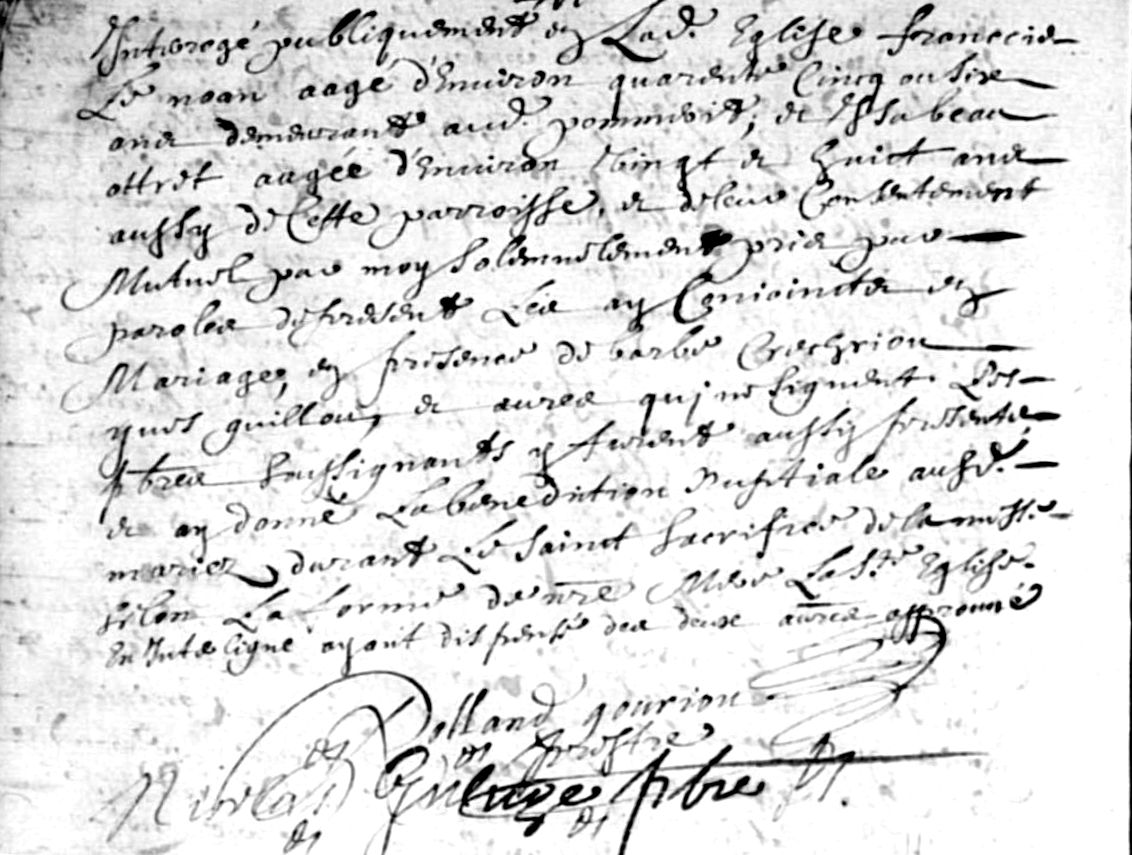 Interogé publiquement en Lad. Eglise francois
Le noan aagé d'Enuiron quarente Cinq ou Six
ans demeurant aud. et Isabeau
ottret aagée d'Enuiron Vingt et huict ans
aussy de Cette parroisse, et de leur Consentement
Mutuel par moy solemnelement pris par
paroles de present Les ay Conioincts en
Mariage, en presence de barbe Crechriou
yues guillou, et autres qui ne signent. Les
pbres soussignants y furent aussy presents,
et ay donné La benediction Nuptiale ausd.
mariez durant Le Sainct Sacrifice de la messe
selon La forme de nre Mere La Ste Eglise.
En Inteligne ayant dispense des deux autres approuué
Rolland gouriou
prestre
Nicolas pbre